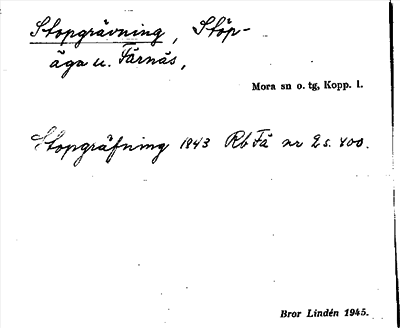 Stopgrävning, Stöp-
äga u. Färnäs,
Mora sn o. tg, Kopp. l.
Stopgräfning 1843 Rb Fä nr 2 s. 400.
Bror Lindén 1945.